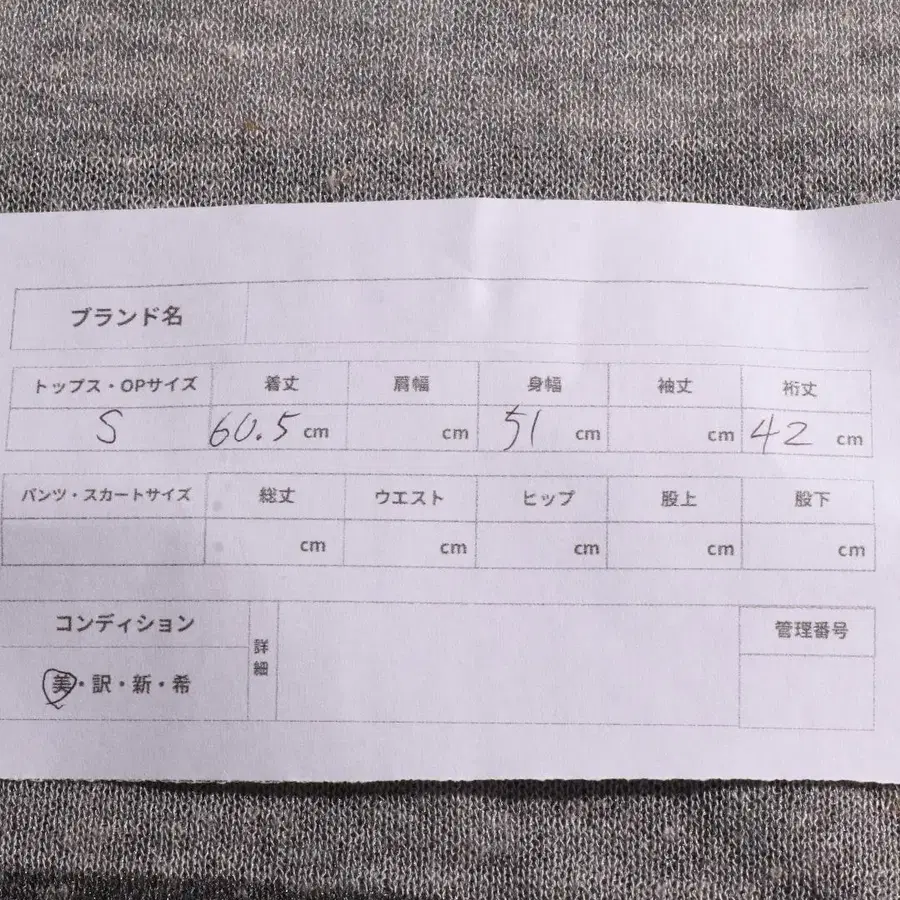 ブランド名
トップス・OPサイズ 着丈 肩幅 身幅 袖丈 裄丈
S 60.5 cm cm 51 cm cm 42 cm
パンツ・スカートサイズ 総丈 ウエスト ヒップ 股上 股下
cm cm cm cm cm
コンディション 詳細 管理番号
美・訳・新・希